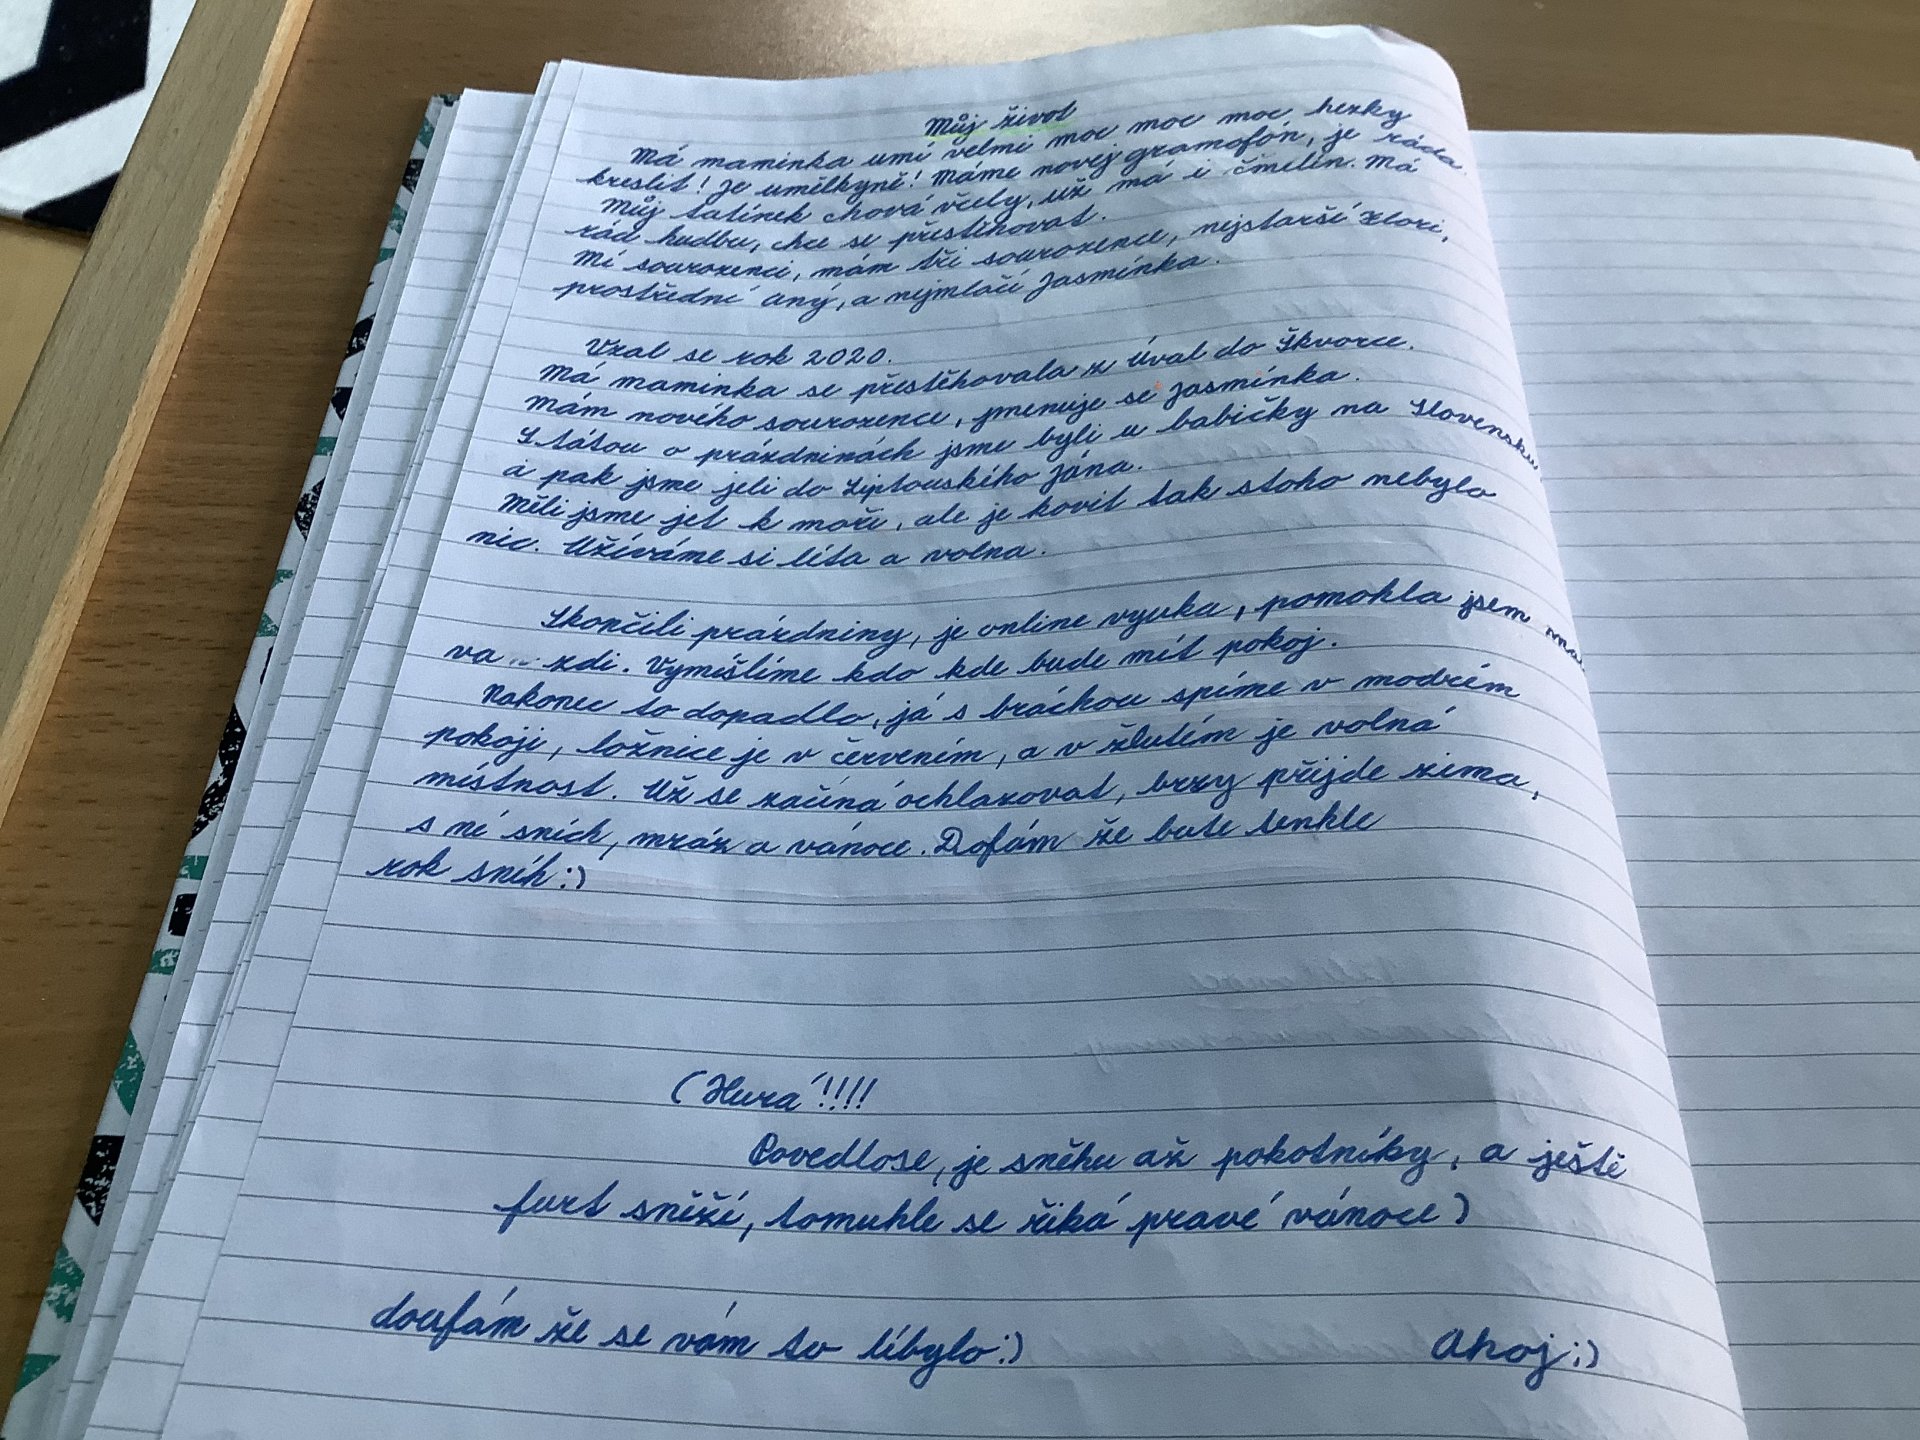 Můj život
Má maminka umí velmi moc moc moc hezky
kreslit! Je umělkyně! Máme novej gramofón, je ráda.
Můj tatínek chová včely, už má i čmelín. Má
rád hudbu, chce se přestěhovat.
Mí sourozenci, mám tři sourozence, nejstarší Klori,
prostřední aný, a nejmlačí Jasmínka.
Vzal se rok 2020.
Má maminka se přestěhovala z Úval do Škvorce.
Mám nového sourozence, jmenuje se Jasmínka.
S tátou o prázdninách jsme byli u babičky na Slovensku
a pak jsme jeli do Liptouského Jána.
Měli jsme jet k moři, ale je kovit tak stoho nebylo
nic. Užíváme si líta a volna.
Skončili prázdniny, je online vyuka, pomohla jsem
zdi. Vymíšlíme kdo kde bude mít pokoj.
Nakonec to dopadlo, já s bráchou spíme v modrém
pokoji, ložnice je v červením, a v žlutím je volná
místnost. Už se začíná ochlazovat, brzy příjde zima,
s ní sních, mráz a vánoce. Dofám že bute tenkle
rok sníh:)
(Hurá!!!!
Povedlose, je sněhu až pokotníky, a ještě
furt sněží, tomuhle se říká pravé vánoce)
doufám že se vám to líbylo:)
Ahoj:)